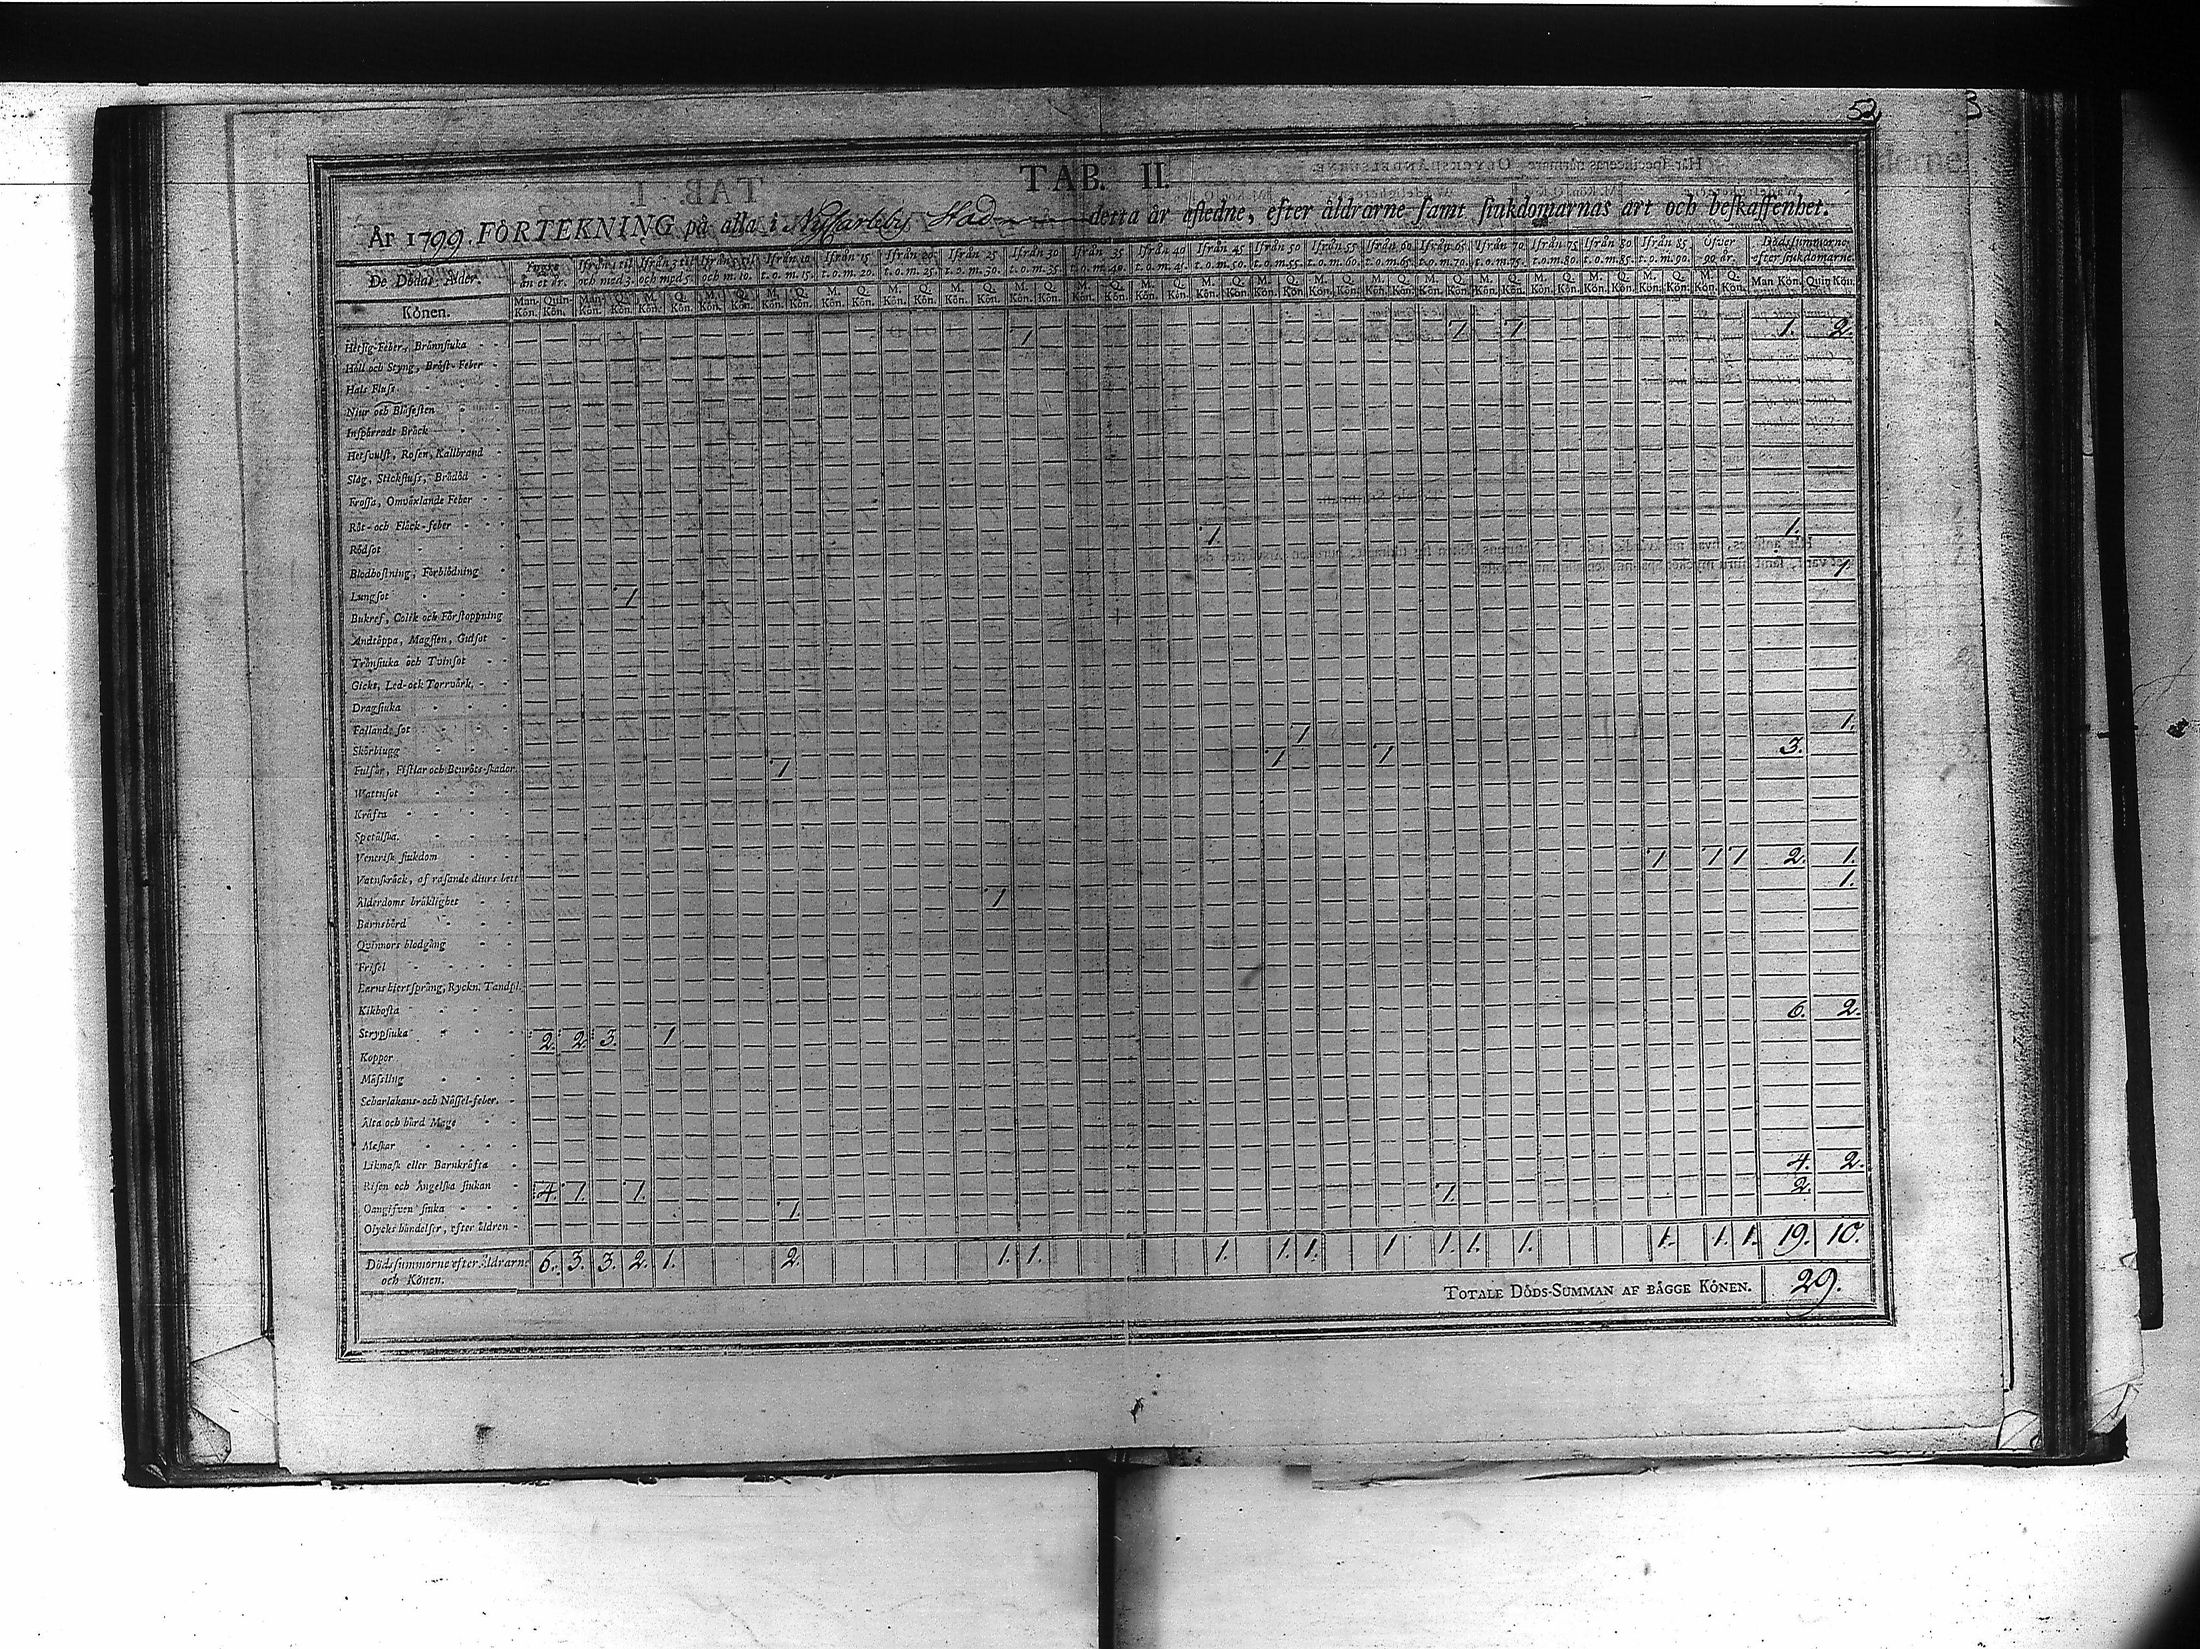 52
TAB. II.
År 1799. FÖRTEKNING på alla i Nykarleby Stad detta år afledne, efter åldrarne samt siukdomarnas art och beskaffenhet.
De Dödas Ålder. Yngre än et år. Ifrån 1 til och med 3. Ifrån 3 til och med 5. Ifrån 5 til och m. 10. Ifrån 10 t. o. m. 15. Ifrån 15 t. o. m. 20. Ifrån 20 t. o. m. 25. Ifrån 25 t. o. m. 30. Ifrån 30 t. o. m. 35. Ifrån 35 t. o. m. 40. Ifrån 40 t. o. m. 45. Ifrån 45 t. o. m. 50. Ifrån 50 t. o. m. 55. Ifrån 55 t. o. m. 60. Ifrån 60 t. o. m. 65. Ifrån 65 t. o. m. 70. Ifrån 70 t. o. m. 75. Ifrån 75 t. o. m. 80. Ifrån 80 t. o. m. 85. Ifrån 85 t. o. m. 90. Öfver 90 år. Dödssummorne efter siukdomarne.
Könen. Man. Kön. Quin. Kön. Man. Kön. Q. Kön. M. Kön. Q. Kön. M. Kön. Q. Kön. M. Kön. Q. Kön. M. Kön. Q. Kön. M. Kön. Q. Kön. M. Kön. Q. Kön. M. Kön. Q. Kön. M. Kön. Q. Kön. M. Kön. Q. Kön. M. Kön. Q. Kön. M. Kön. Q. Kön. M. Kön. Q. Kön. M. Kön. Q. Kön. M. Kön. Q. Kön. M. Kön. Q. Kön. M. Kön. Q. Kön. M. Kön. Q. Kön. M. Kön. Q. Kön. M. Kön. Q. Kön. Man Kön. Quin Kön.
Hetsig-Feber, Brännsiuka 1 1 1 1. 2.
Håll och Styng, Bröst-Feber
Hals Fluss
Niur och Blåsesten
Inspärradt Bråck
Hetsvulst, Rosen, Kallbrand
Slag, Stickfluss, Brådöd
Frossa, Omväxlande Feber
Röt- och Fläck-feber
Rödsot 1. 1.
Blodhostning, Förblödning
Lungsot 1 1
Bukref, Colik och Förstoppning
Andtäppa, Magsten, Gulsot
Trånsiuka och Tvinsot
Gickt, Led- och Torrvärk,
Dragsiuka
Fallandesot
Skörbiugg 1 1.
Fulsår, Fistlar och Benröte-skador. 1 1 1 3.
Wattusot
Kräfta
Spetälska.
Venerisk siukdom
Vatnskräck, af rasande diurs bett 1 1 1 2. 1.
Ålderdoms bräklighet 1 1.
Barnsbörd
Qvinnors blodgång
Frisel
Barns hiertsprång, Ryckn. Tandpl.
Kikhosta
Strypsiuka 2. 2. 3. 1 6. 2.
Koppor
Mässling
Scharlakans- och Nässel-feber.
Älta och hård Mage
Maskar
Likmask eller Barnkräfta
Risen och Ängelska siukan 4. 1. 1. 1. 4. 2.
Oangifven siuka 1. 2.
Olycks händelser, efter åldren
Dödssummorne efter Åldrarne och Könen. 6. 3. 3. 2. 1. 2. 1. 1. 1. 1. 1. 1 1. 1. 1. 1. 1. 1. 19. 10.
TOTALE DÖDS-SUMMAN AF BÅGGE KÖNEN. 29.